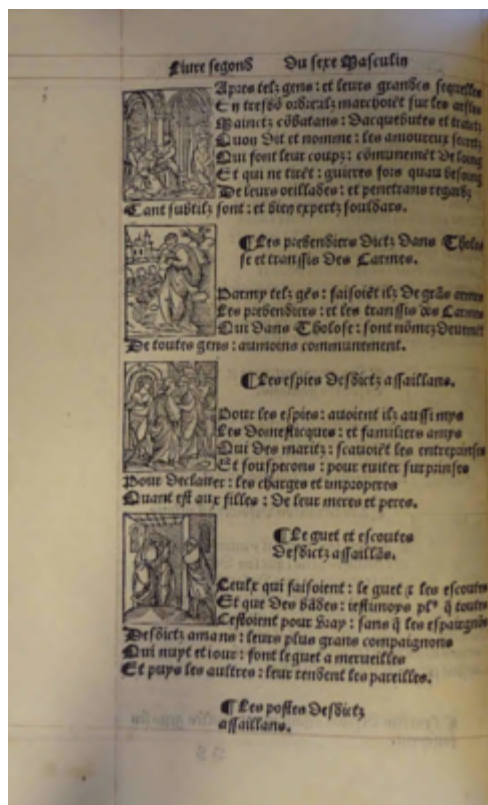 Liure segond Du sexe Masculin
Apres telz gens: et leurs grandes sequelles
En tresbō marchoiēt sur les
Mainctz cōbatans: Dacquebutes et
Quon dit et nomme: les amoureux
Qui font leur coups: cōmunemēt de loing
Et qui ne tirēt: guieres fors quau besoing
De leurs oeillades: et penetrans regardz
Tant subtilz sont: et bien expertz souldars.
¶ Les prebendiers dictz dans Tholo
se et transsis des Carmes.
Parmy telz gēs: faisoiēt ilz de grās armes
Les prebendiers: et les transsis des Carmes
Qui dans Tholose: sont nōmez
De toutes gens: aumoins communement.
¶ Les espies desdictz assaillans.
Pour les espies: auoient ilz aussi mys
Les domesticques: et familiers amys
Qui des maritz: scauoiēt les entreprinses
Et souspecons: pour euiter surprinses
Pour declairer: les charges et improperes
Quant est aux filles: de leur meres et peres.
¶ Le guet et escoutes
desdictz assaillās.
Ceulx qui faisoient: le guet & les escoutes
Et que des: plꝰ q̄ toutes
Cestoient pour vray: sans q̄ les espaignōs
Desdictz amans: leurs plus grans compaignons
Qui nuyt et iour: font le guet a merueilles
Et puys les aultres: leur rendent les pareilles.
¶ Les postes desdictz
assaillans.